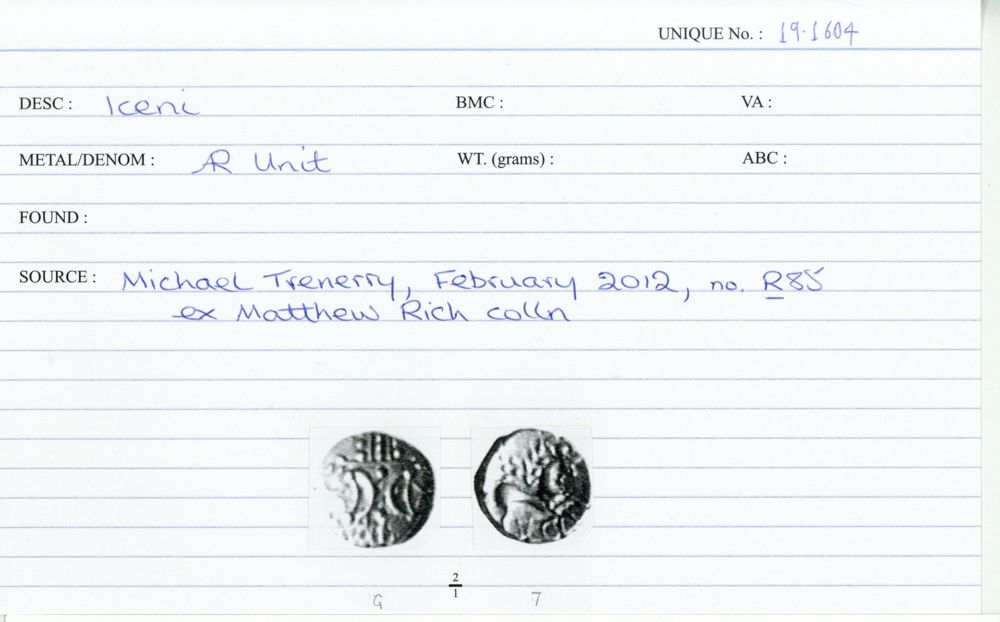 UNIQUE No. : 19.1604
DESC : Iceni BMC : VA :
METAL/DENOM : AR Unit WT. (grams) : ABC :
FOUND :
SOURCE : Michael Trenerry, February 2012, no. R85
ex Matthew Rich colln
2
1
G 7